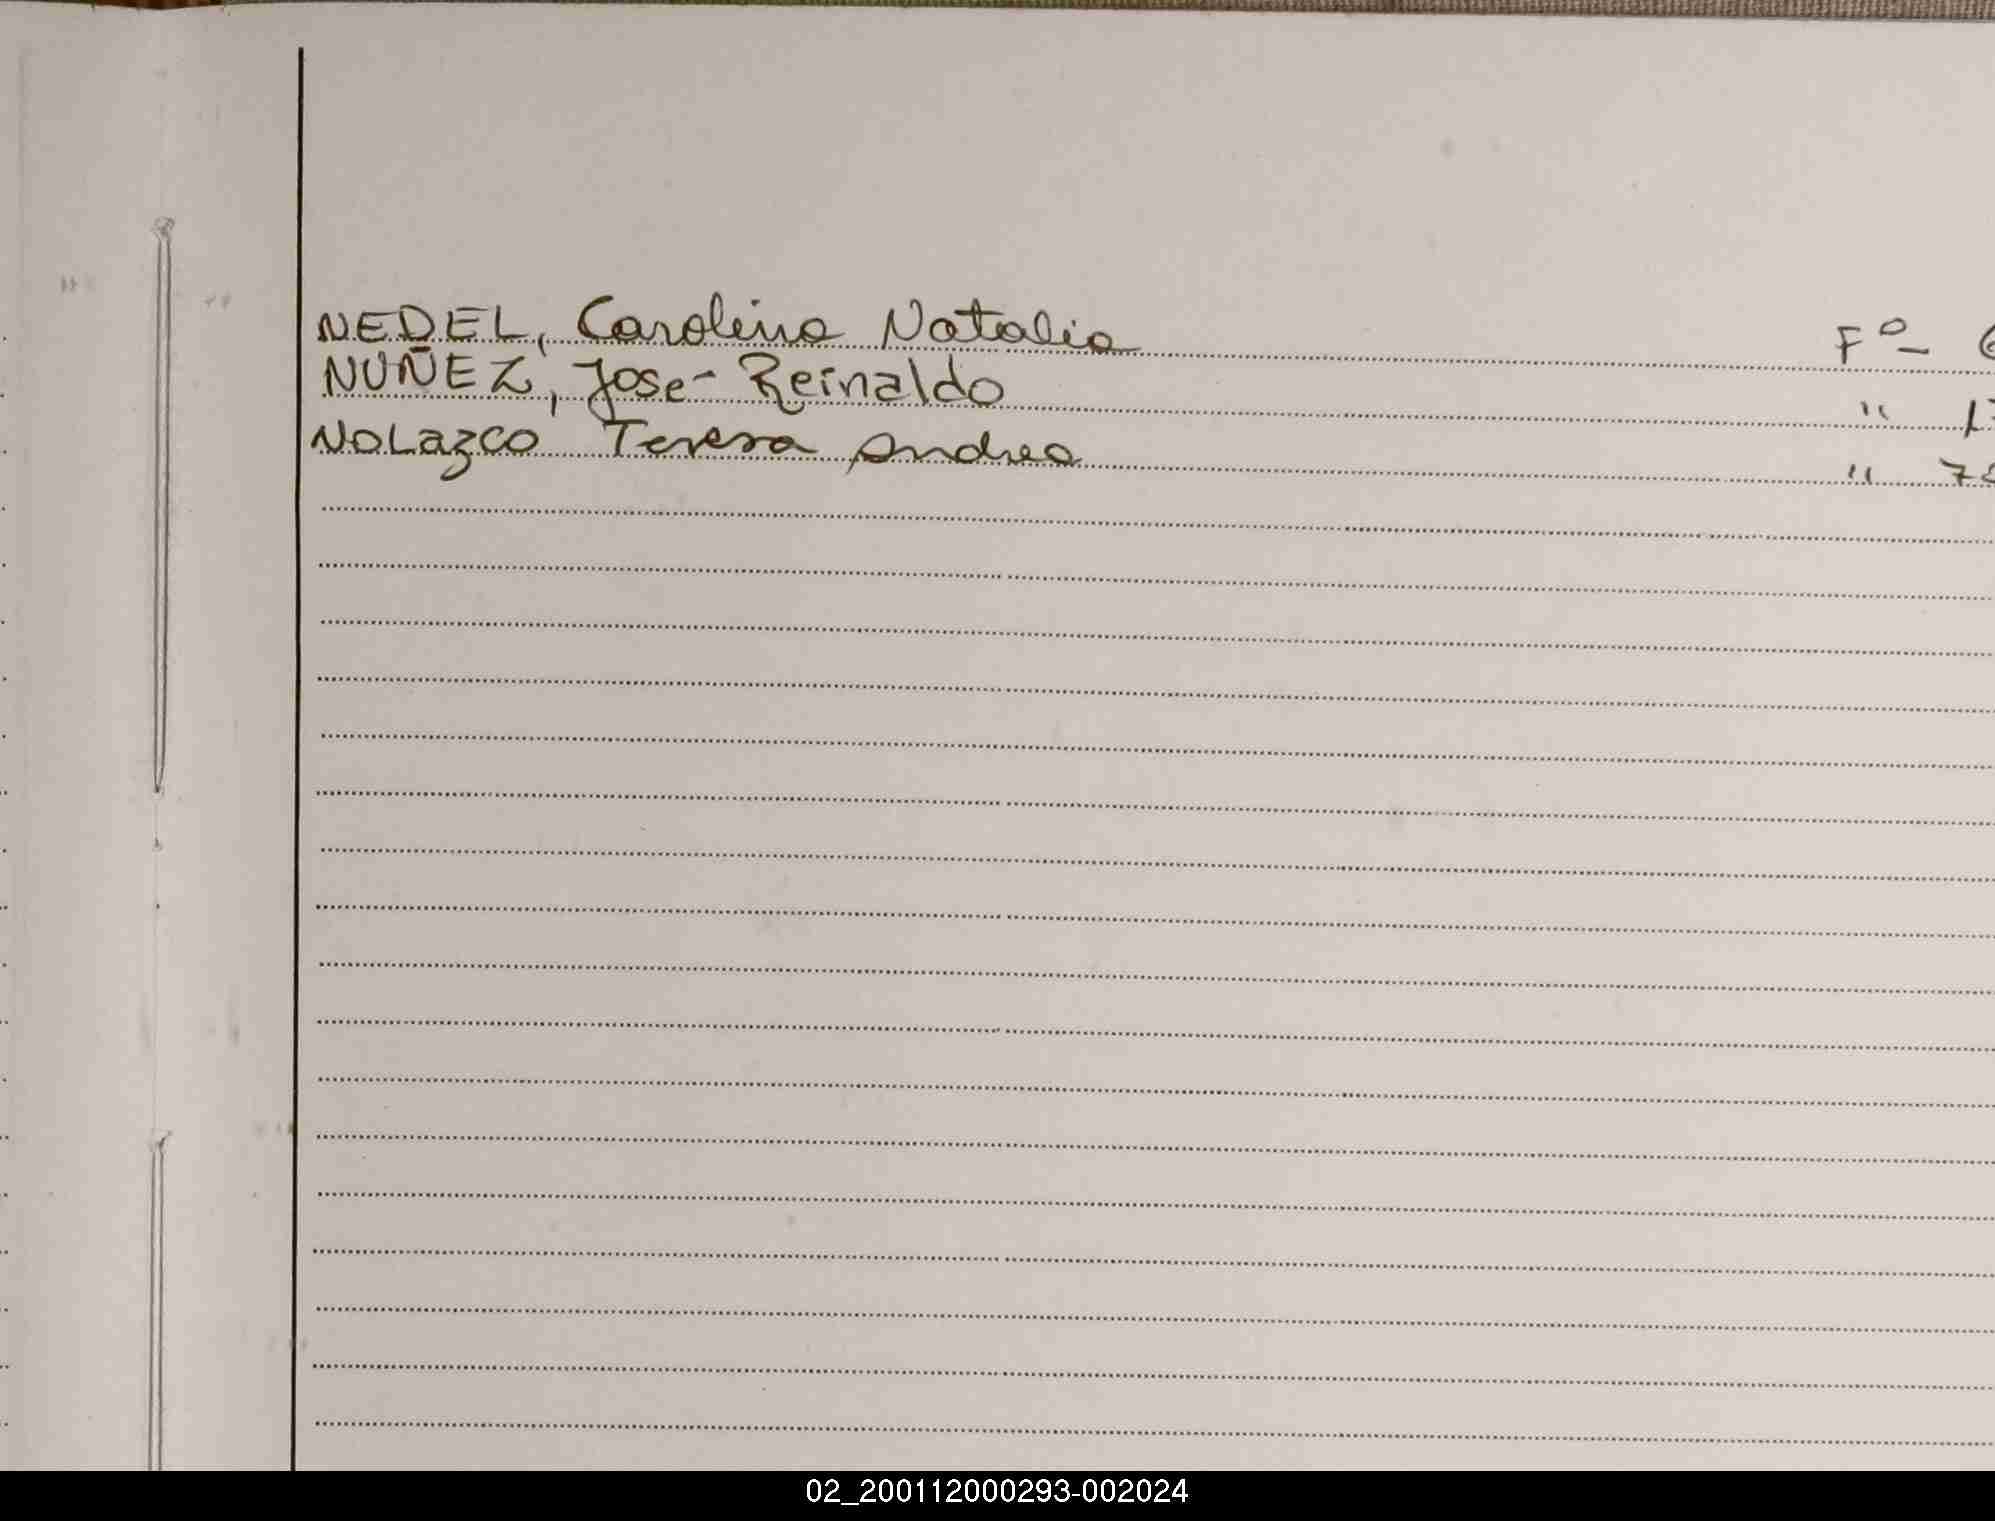 NEDEL, Carolina Natalia Fº- 6
NUÑEZ, Jose Reinaldo " 1
NOLAZCO Teresa Andrea " 7
02_200112000293-002024